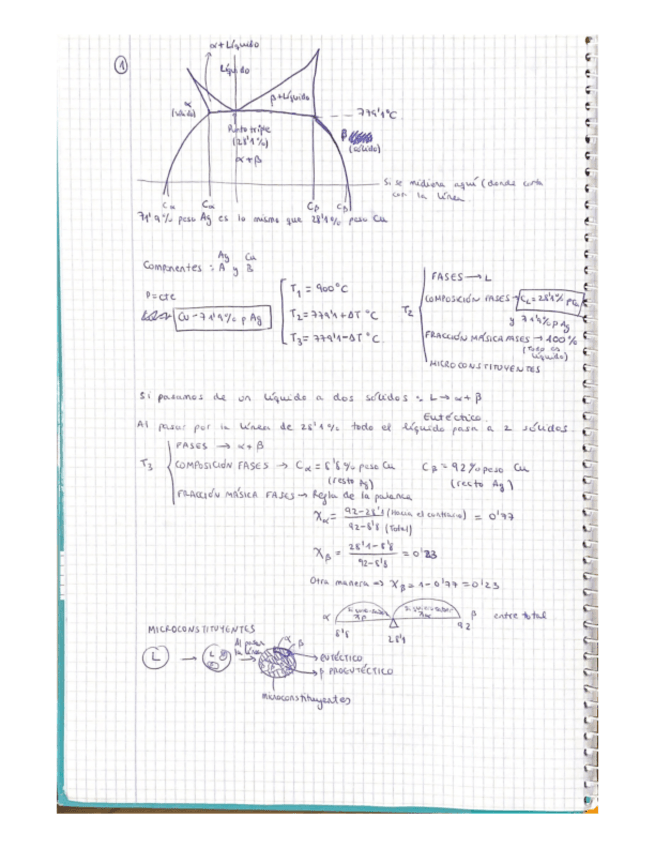 1
α+Líquido
Líquido
α
(sólido)
β+Líquido
779'1°C
Punto triple
(28'1%)
β
(sólido)
α+β
Si se midiera aquí (donde corta
con la línea
Cα Cα Cβ Cβ
71'9% peso Ag es lo mismo que 28'1% peso Cu
Ag Cu
Componentes : A y B
P=CTE
Cu-71'9% p Ag
T1 = 900°C
T2=779'1+ΔT °C
T3=779'1-ΔT °C
T2
FASES → L
COMPOSICIÓN FASES → CL=28'1% p Cu
y 71'9% p Ag
FRACCIÓN MÁSICA FASES → 100%
(Todo es
líquido)
MICROCONSTITUYENTES
Si pasamos de un líquido a dos sólidos : L → α+β
Eutéctico
Al pasar por la línea de 28'1% todo el líquido pasa a 2 sólidos
T3
FASES → α+β
COMPOSICIÓN FASES → Cα = 8'8% peso Cu Cβ = 92% peso Cu
(resto Ag) (resto Ag)
FRACCIÓN MÁSICA FASES → Regla de la palanca
Xα = 92-28'1 (Hacia el contrario) / 92-8'8 (Total) = 0'77
Xβ = 28'1-8'8 / 92-8'8 = 0'23
Otra manera => Xβ = 1-0'77 = 0'23
α β entre total
8'8 28'1 92
MICROCONSTITUYENTES
L → L Al pasar
la línea → α β
EUTÉCTICO
β PROEUTÉCTICO
microconstituyentes